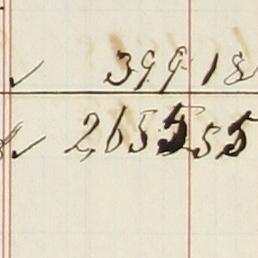 ✓ 399 18
✓ 2655 55